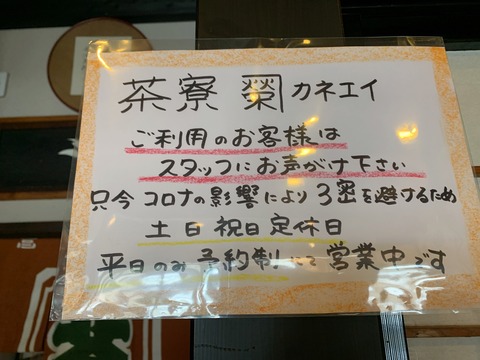 茶寮 カネエイ
ご利用のお客様は
スタッフにお声がけ下さい
只今コロナの影響により3密を避けるため
土日祝日定休日
平日のみ予約制にて営業中です